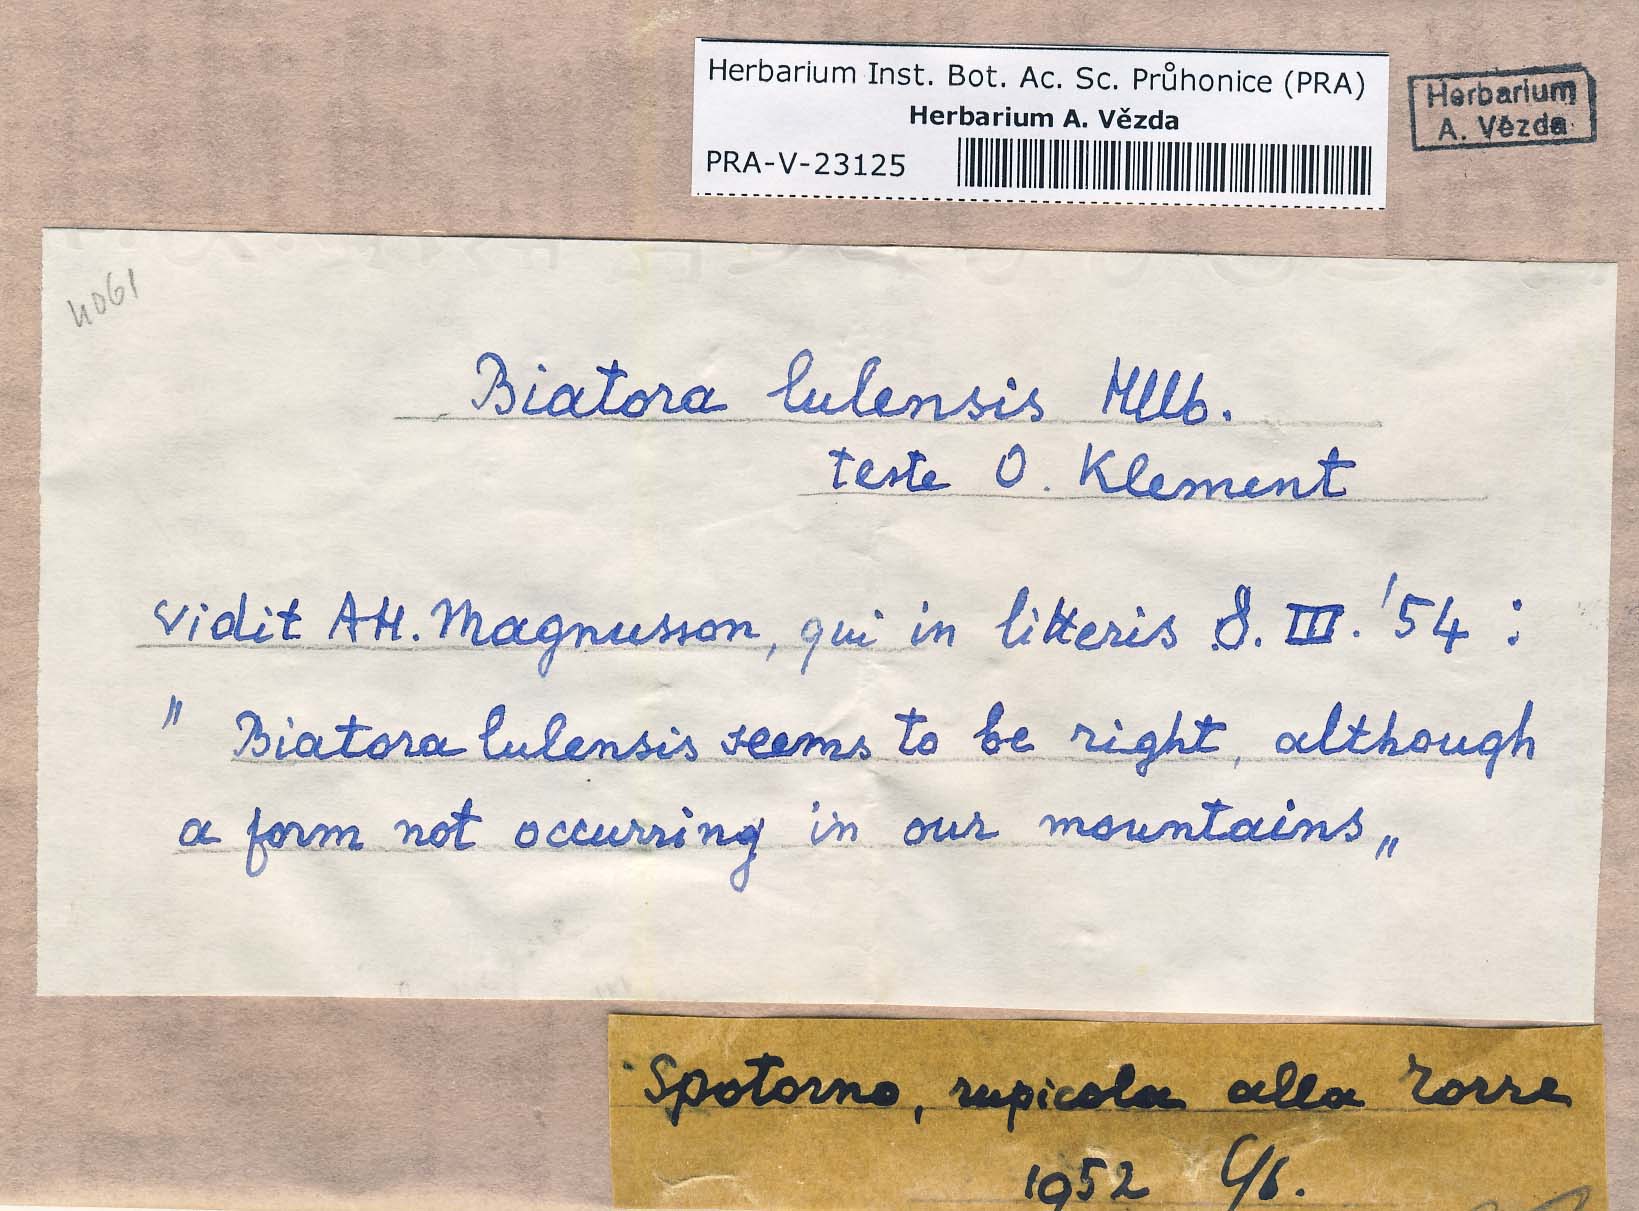 Herbarium Inst. Bot. Ac. Sc. Průhonice (PRA)
Herbarium A. Vězda
PRA-V-23125
Herbarium
A. Vězda
4061
Biatora lulensis Hllb.
teste O. Klement
vidit AH. Magnusson, qui in litteris 8. III. '54 :
" Biatora lulensis seems to be right, although
a form not occurring in our mountains„
Spotorno, rupicola alla Torre
1952